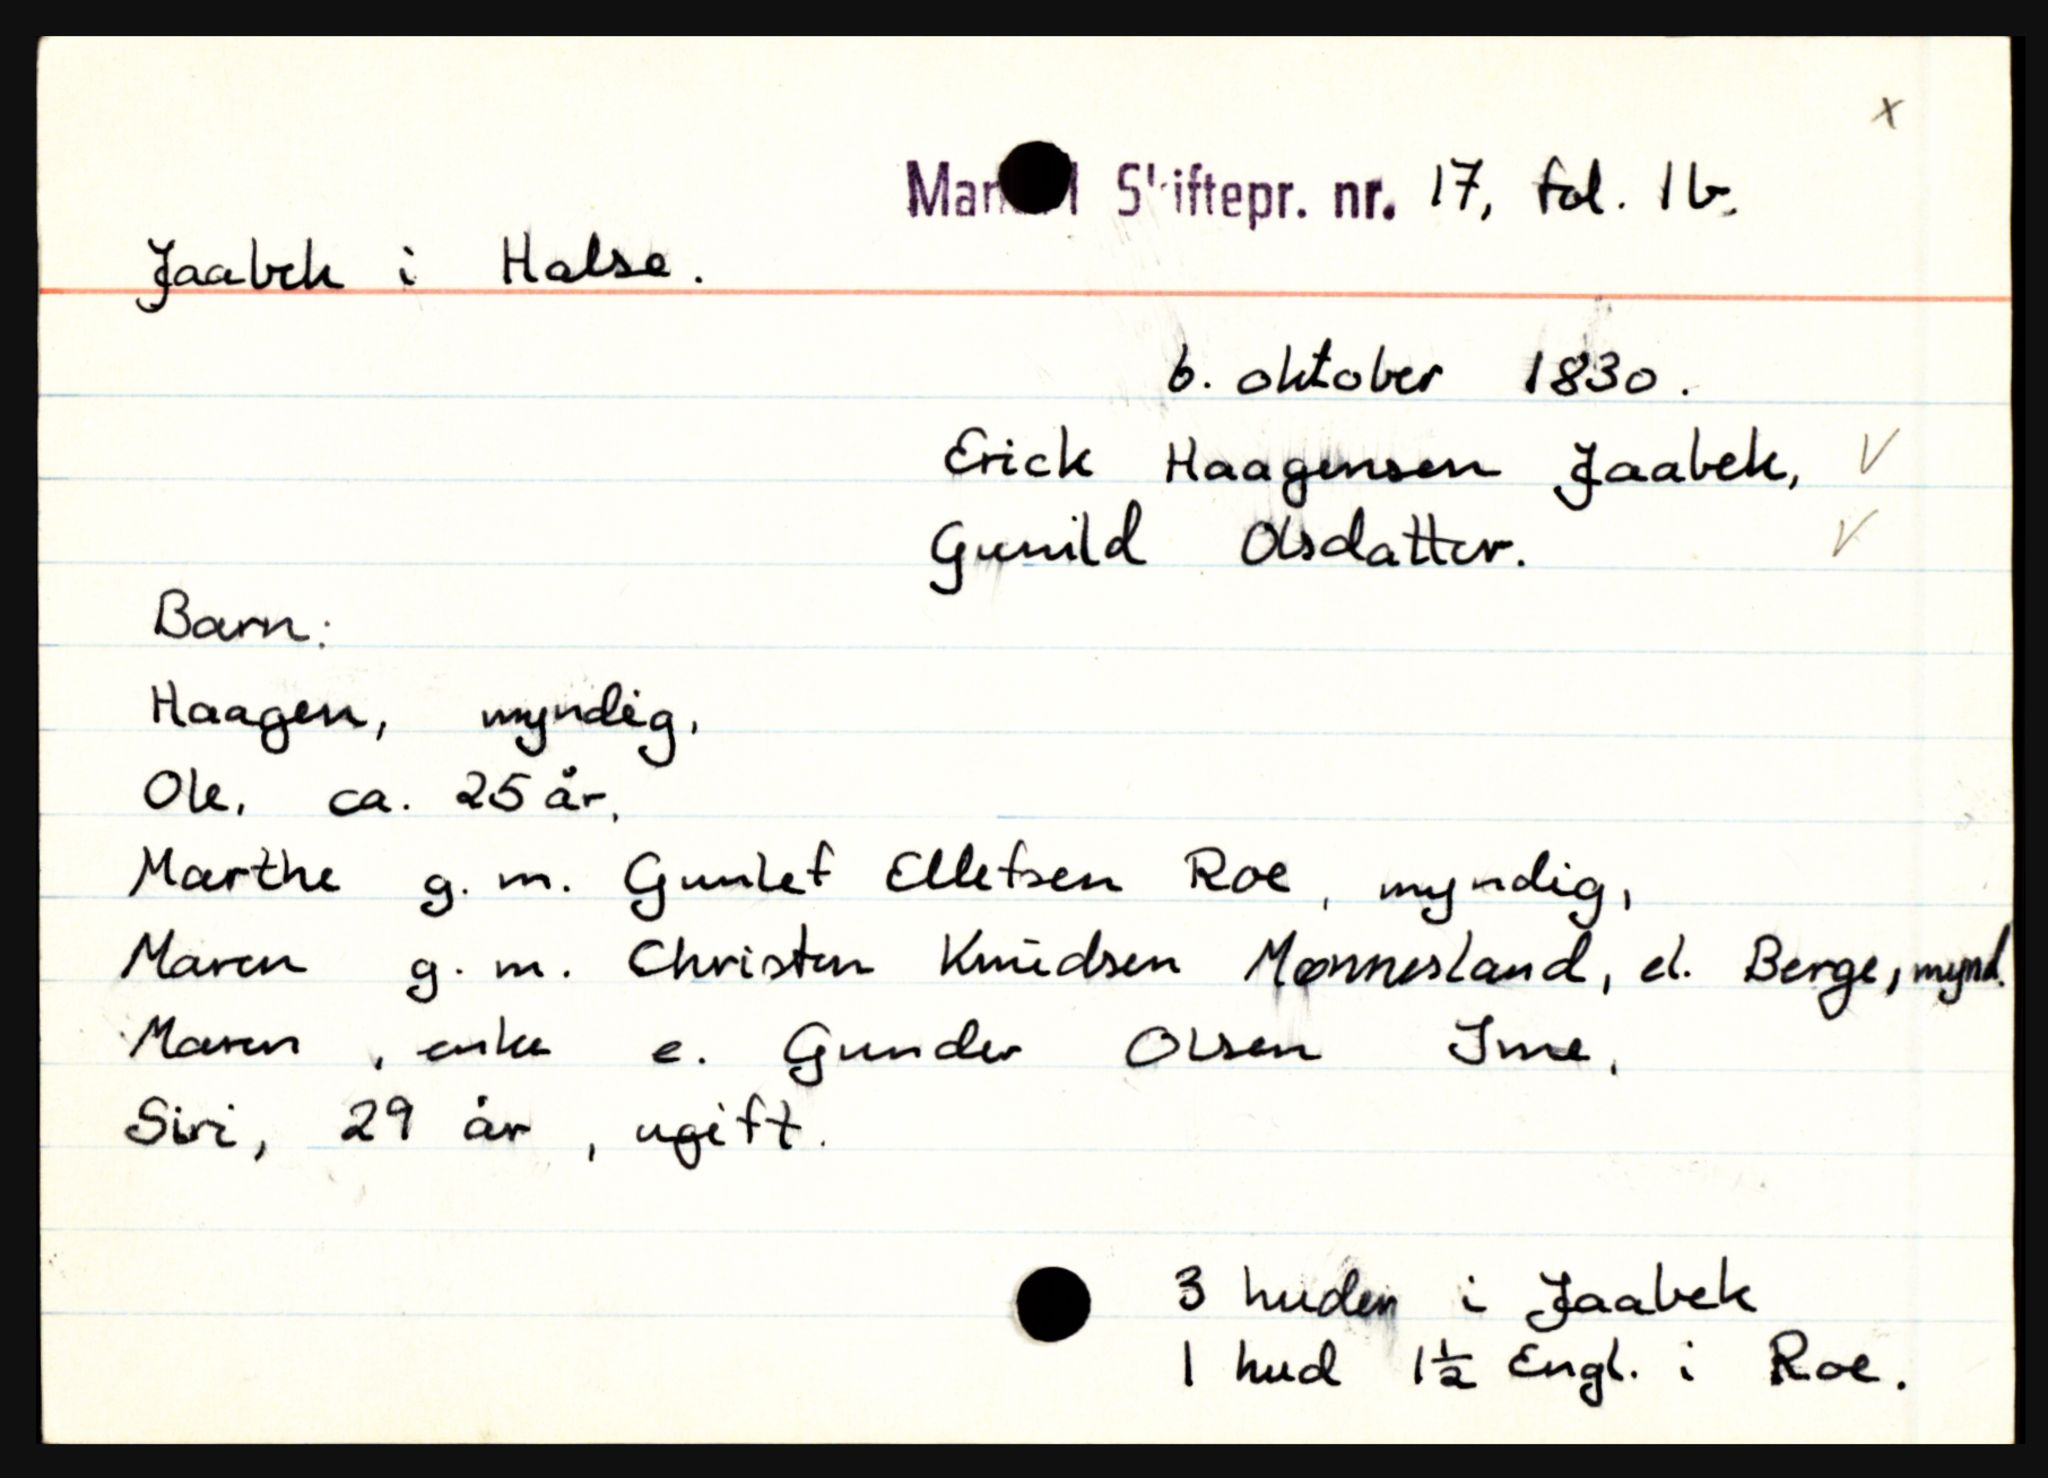 x
Mandal Skiftepr. nr. 17, fol. 1b.
Jaabek i Halse.
6. oktober 1830.
Erick Haagensen Jaabek, V
Gunild Olsdatter. V
Barn:
Haagen, myndig,
Ole, ca. 25 år,
Marthe g. m. Gunlef Ellefsen Roe, myndig,
Maren g. m. Christen Knudsen Mønnesland, el. Berge, mynd.
Maren, enke e. Gunder Olsen Ime,
Siri, 29 år, ugift.
3 huder i Jaabek
1 hud 1½ Engl. i Roe.